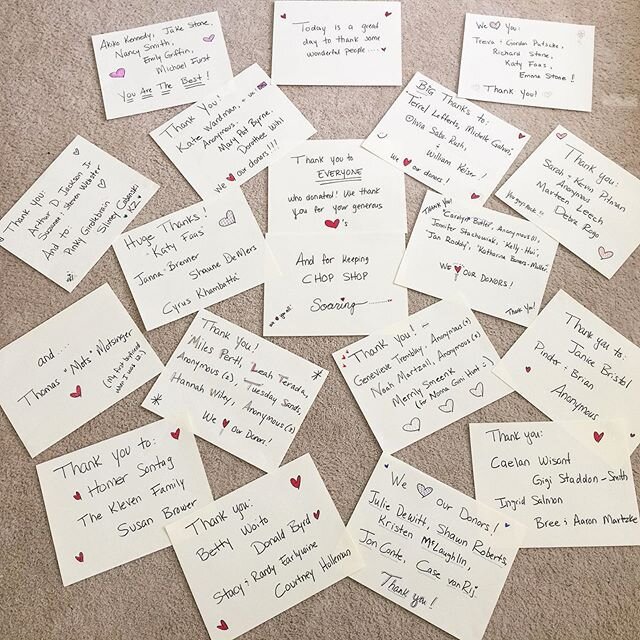 Akiko Kennedy, Jake Stone,
Nancy Smith,
Emily Griffin,
Michael Furst
You Are The Best!
Today is a great
day to thank some
wonderful people....
We You:
Treva + Gordon Patscke,
Richard Stone,
Katy Faas,
Emma Stone!
Thank You!
Thank You!
Katie Wardman,
Anonymous,
Mary Pat Byrne,
Dorothee Wihl
We our donors!!!
BIG Thanks to:
Terrel Lefferts, Michelle
Olivia Sabe Rush,
+
William Keiser!
We our donors!
Thank You:
Arthur D. Jackson Jr.
Suzanne + Steven Webster
And to:
Pinky Giroklhain
Thank you to
EVERYONE
who donated! We thank
you for your generous
's
Thank you:
Sarah + Kevin Pitman
Anonymous
Marteen Leech
Debra Rigo
Huge Thanks!
"Katy Faas"
Janna Brenner
Shaune DeMers
Cyrus Khambatta
And for keeping
CHOP SHOP
Soaring
Thank You!
"Carolyn Butler, Anonymous(2),
Jennifer Stachowiak, Kelly-Hui,
Jan Roddy, Katharina Bowers-Muller,
WE OUR DONORS!
Thank You!
and....
Thomas "Mots" Motsinger
(My first boyfriend
when I was 5!)
Thank You!
Miles Pertl, Leah Terada,
Anonymous(2), Tuesday Sands,
Hannah Wiley, Anonymous(2)
We Our Donors!
Thank You! -
Genevieve Tremblay, Anonymous(2)
Noah Martzall, Anonymous(2)
Merrily Smeenk
(for Nonna Gini Hind =)
Thank you to:
Janice Bristol
Pinder + Brian
Anonymous
Thank you to:
Homer Sontag
The Kleven Family
Susan Brower
Thank you:
Betty Waito
Donald Byrd
Stacy + Randy Earlywine
Courtney Holleman
We our Donors!
Julie Dewitt, Shawn Roberts,
Kristen McLaughlin,
Jon Conte, Case vanRij.
Thank you!
Thank You:
Caelan Wisont
Gigi Staddon-Smith
Ingrid Salmon
Bree + Aaron Martzke